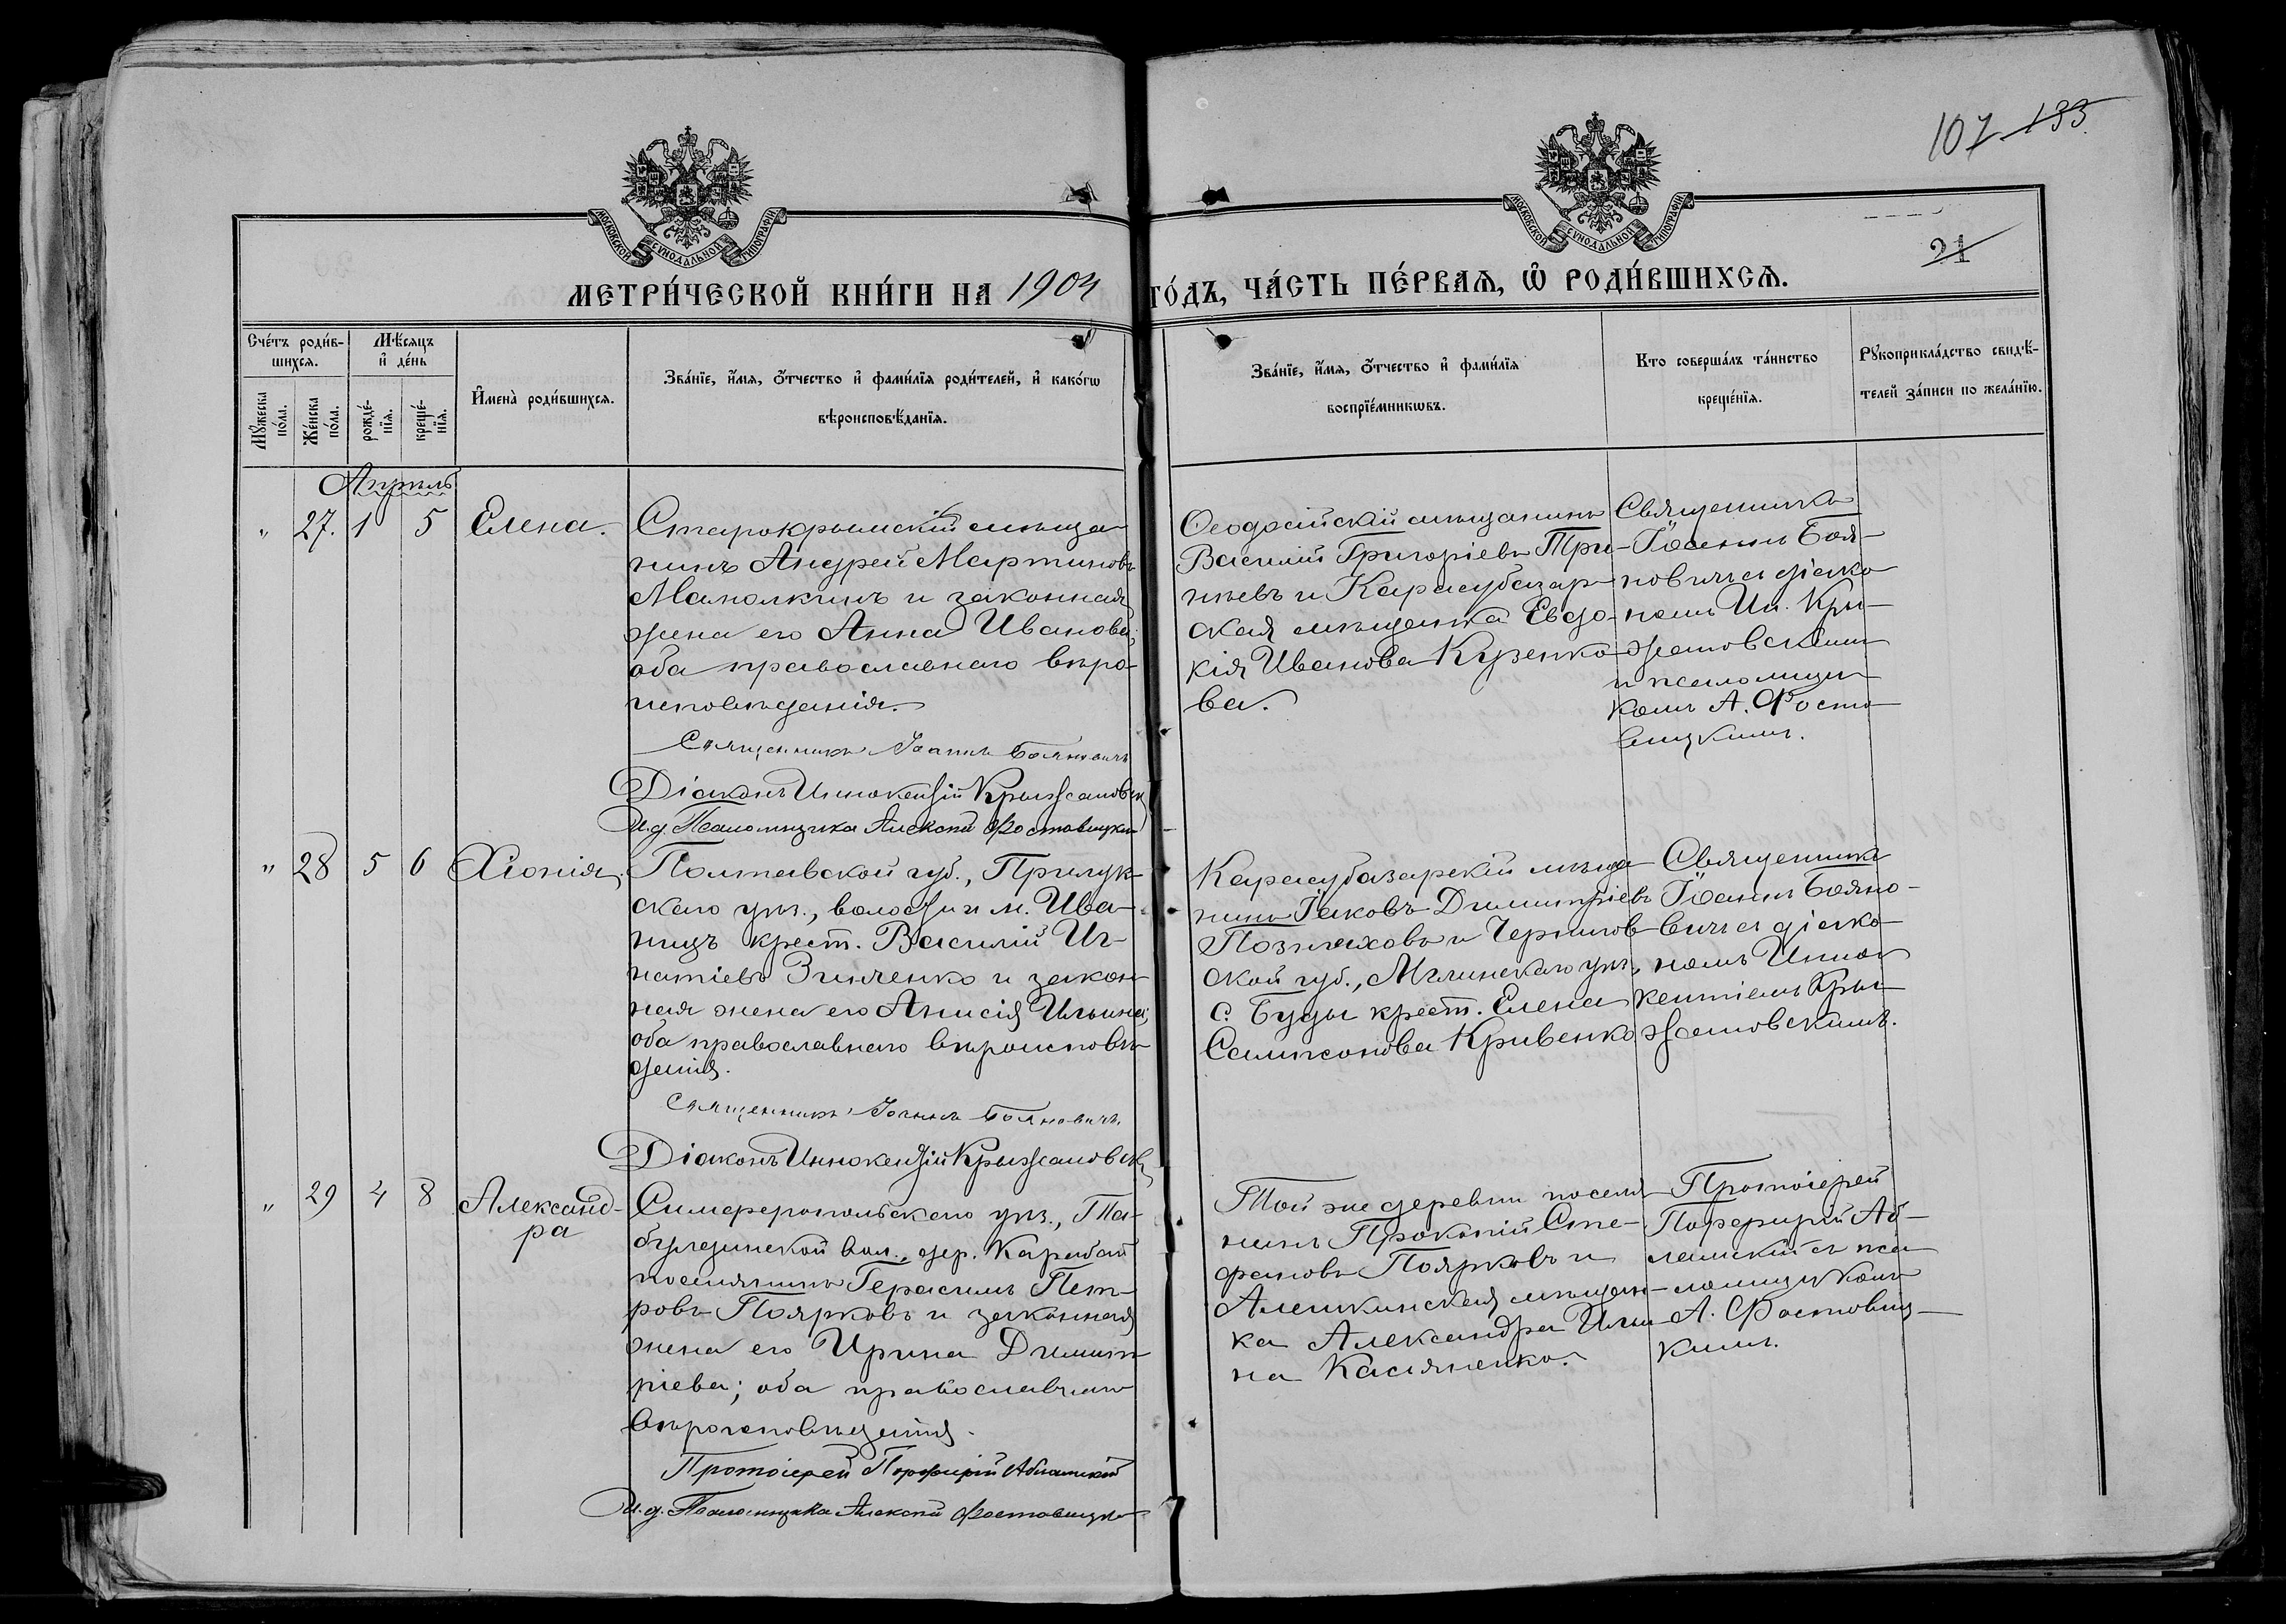 107 133
21
МОСКОВСКОЙ СѴНОДАЛЬНОЙ ТИПОГРАФІИ
МОСКОВСКОЙ СѴНОДАЛЬНОЙ ТИПОГРАФІИ
МЕТРИ́ЧЕСКОЙ КНИ́ГИ НА 1904 ГО́ДЪ, ЧА́СТЬ ПЕ́РВАѦ, Ѽ РОДИ́ВШИХСѦ.
Сче́тъ роди́в-
шихсѧ.
Мѣ́сѧцъ
и҆ де́нь
Мꙋ́жеска
по́ла.
Же́нска
по́ла.
рожде́-
нїѧ.
креще́-
нїѧ.
И҆мена̀ роди́вшихсѧ.
Зва́нїе, и҆́мѧ, ѻ҆́тчество и҆ фами́лїѧ роди́телей, и҆ како́гѡ
вѣроисповѣ́данїѧ.
Зва́нїе, и҆́мѧ, ѻ҆́тчество и҆ фами́лїѧ
воспрїе́мникѡвъ.
Кто соверша́лъ та́инство
креще́нїѧ.
Рꙋкоприкла́дство свидѣ́-
телей за́писи по жела́нїю.
Апрѣль
" 27. 1 5 Елена.
Старокрымскій мѣща-
нинъ Андрей Мартиновъ
Мамолкинъ и законная
жена его Анна Иванова;
оба православнаго вѣро-
исповѣданія.
Священникъ Іоаннъ Бояновичъ
Діаконъ Иннокентій Крыжановск
И.д. Псаломщика Алексѣй Фостовицкі
Ѳеодосійскій мѣщанинъ
Василій Григоріевъ Три-
нѣевъ и Карасубазар-
ская мѣщанка Евдо-
кія Иванова Кузенко-
ва.
Священникъ
Іоаннъ Боя-
новичъ съ діако-
номъ Ин. Кры-
жановскимъ
и псаломщи-
комъ А. Фосто-
вицкимъ.
" 28 5 6 Хіонія
Полтавской губ., Прилук-
скаго уѣз., волости и м. Ива-
ницъ крест. Василій Иг-
натіевъ Зинченко и закон-
ная жена его Анисія Ильина;
оба православнаго вѣроисповѣ-
данія.
Священникъ Іоаннъ Бояновичъ.
Діаконъ Иннокентій Крыжановскі
Карасубазарскій мѣща-
нинъ Іаковъ Димитріевъ
Позняховъ и Чернигов-
ской губ., Мглинскаго уѣз.,
с. Буды крест. Елена
Сампсонова Кривенко
Священникъ
Іоаннъ Бояно-
вичъ съ діако-
номъ Инно-
кентіемъ Кры-
жановскимъ.
" 29 4 8 Александ-
ра
Симферопольскаго уѣз., Та-
булдинской вол., дер. Карабай
поселянинъ Герасимъ Пет-
ровъ Поярковъ и законная
жена его Ирина Димит-
ріева; оба православнаго
вѣроисповѣданія.
Протоіерей Порфирій Абламскій
И.д. Псаломщика Алексѣй Фостовицкі
Той же деревни поселя-
нинъ Прокопій Сте-
фановъ Поярковъ и
Алешкинская мѣщан-
ка Александра Ильи-
на Касяненко.
Протоіерей
Порфирій Аб-
ламскій съ пса-
ломщикомъ
А. Фостовиц-
кимъ.